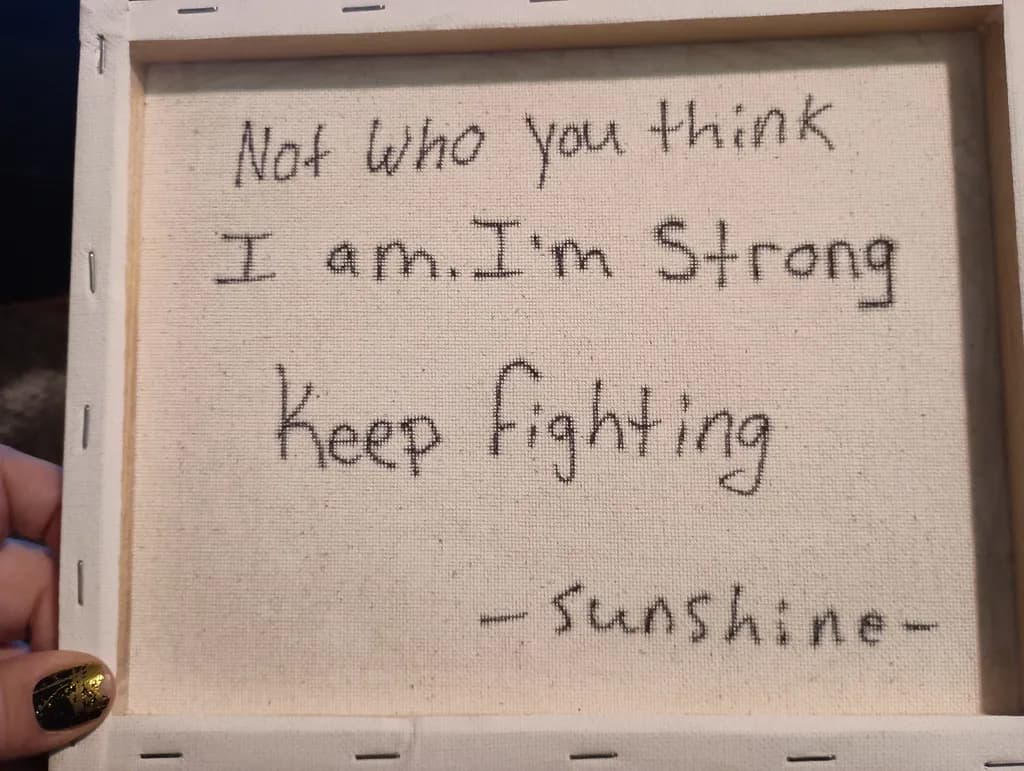 Not Who you think
I am. I'm Strong
Keep fighting
- Sunshine -